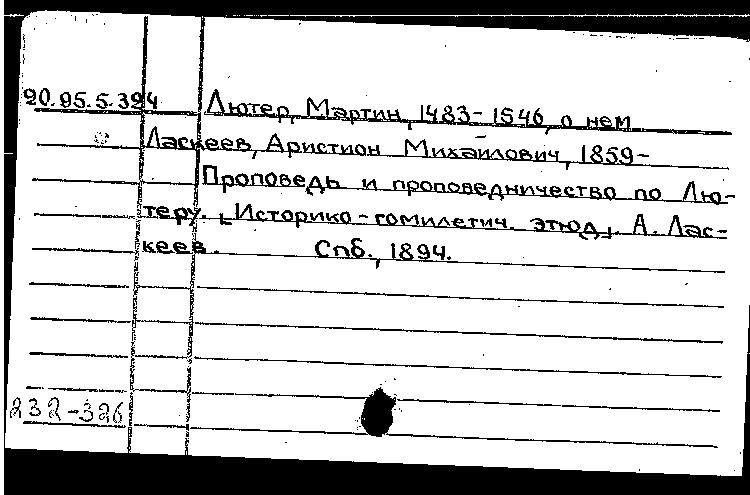 20.95.5.394 Лютер, Мартин, 1483-1546, о нем
Ласкеев, Аристион Михайлович, 1859-
Проповедь и проповедничество по Лю-
теру. [Историко-гомилетич. этюд]. А. Лас-
кеев. Спб., 1894.
232-326